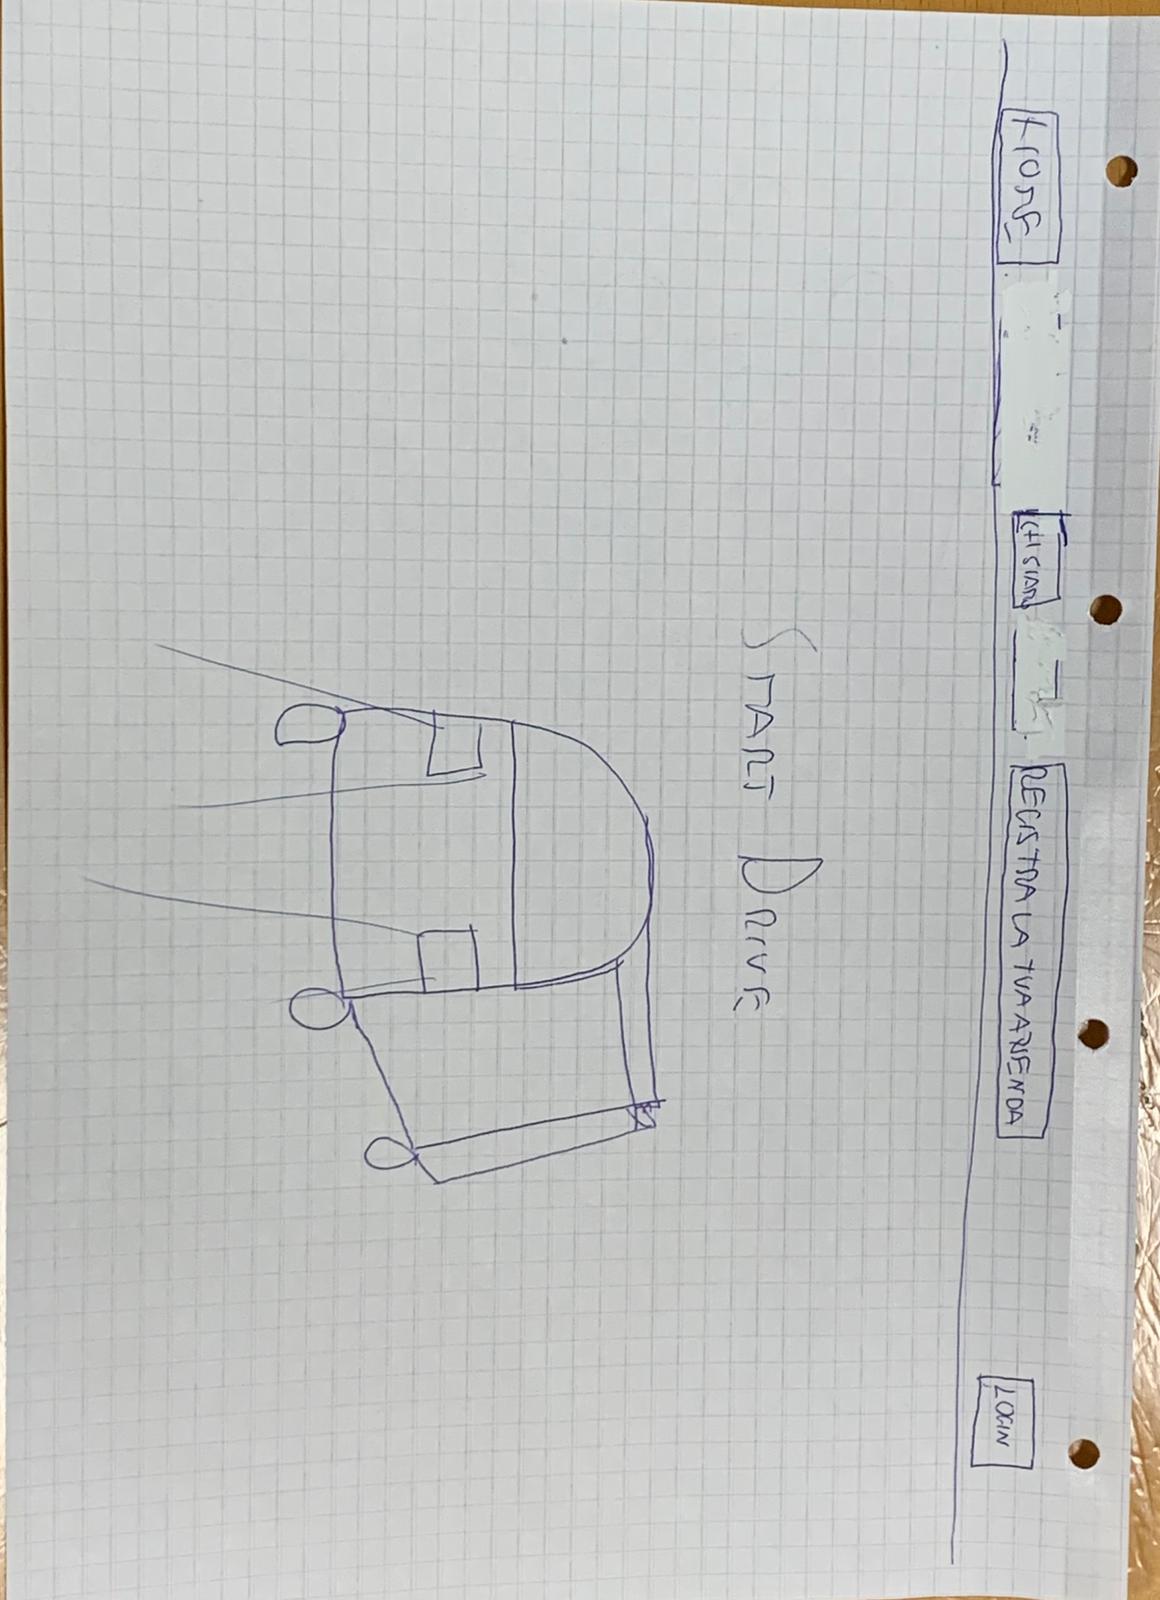 HOME CHI SIAMO REGISTRA LA TUA AZIENDA LOGIN
SMART DRIVE